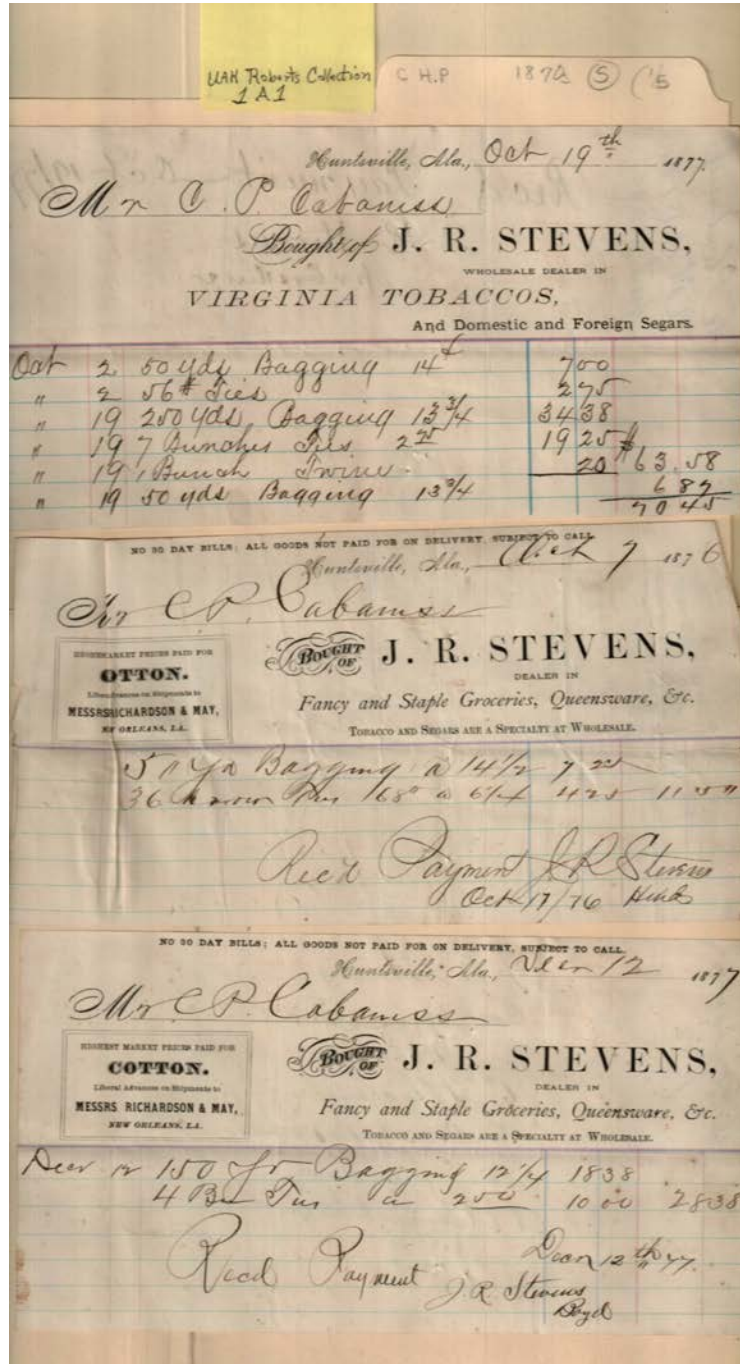 UAH Roberts Collection
1A1
C H.P 1870s S
Huntsville, Ala., Oct 19th 1877.
Mr C. P. Cabaniss
Bought of J. R. STEVENS,
WHOLESALE DEALER IN
VIRGINIA TOBACCOS,
And Domestic and Foreign Segars.
Oct 2 50 yds Bagging 14 700
" 2 56# Ties 275
" 19 250 yds Bagging 13 3/4 3438
" 19 7 Bunches Ties 2 75 1925
" 19 1 Bunch Twine 20 $63.58
" 19 50 yds Bagging 13 3/4 687
7045
NO 30 DAY BILLS; ALL GOODS NOT PAID FOR ON DELIVERY, SUBJECT TO CALL
Huntsville, Ala., Oct 7 1876
C P. Cabaniss
MARKET PRICES PAID FOR
OTTON.
Liberal Advances on Shipments to
MESSRS RICHARDSON & MAY,
NEW ORLEANS, LA.
BOUGHT OF J. R. STEVENS,
DEALER IN
Fancy and Staple Groceries, Queensware, &c.
TOBACCO AND SEGARS ARE A SPECIALTY AT WHOLESALE.
50 Yd Bagging a 14 1/2 7 25
36 Ties 68# a 6 1/4 425 11 50
Rec'd Payment J R Stevens
Oct 17/76
NO 30 DAY BILLS; ALL GOODS NOT PAID FOR ON DELIVERY, SUBJECT TO CALL.
Huntsville, Ala., Decr 12 1877
Mr C P. Cabaniss
HIGHEST MARKET PRICES PAID FOR
COTTON.
Liberal Advances on Shipments to
MESSRS RICHARDSON & MAY,
NEW ORLEANS, LA.
BOUGHT OF J. R. STEVENS,
DEALER IN
Fancy and Staple Groceries, Queensware, &c.
TOBACCO AND SEGARS ARE A SPECIALTY AT WHOLESALE.
Decr 12 150 Bagging 12 1/4 1838
4 Bu Ties a 250 10 00 2838
Recd Payment Decr 12th 77
J. R. Stevens
Boyd